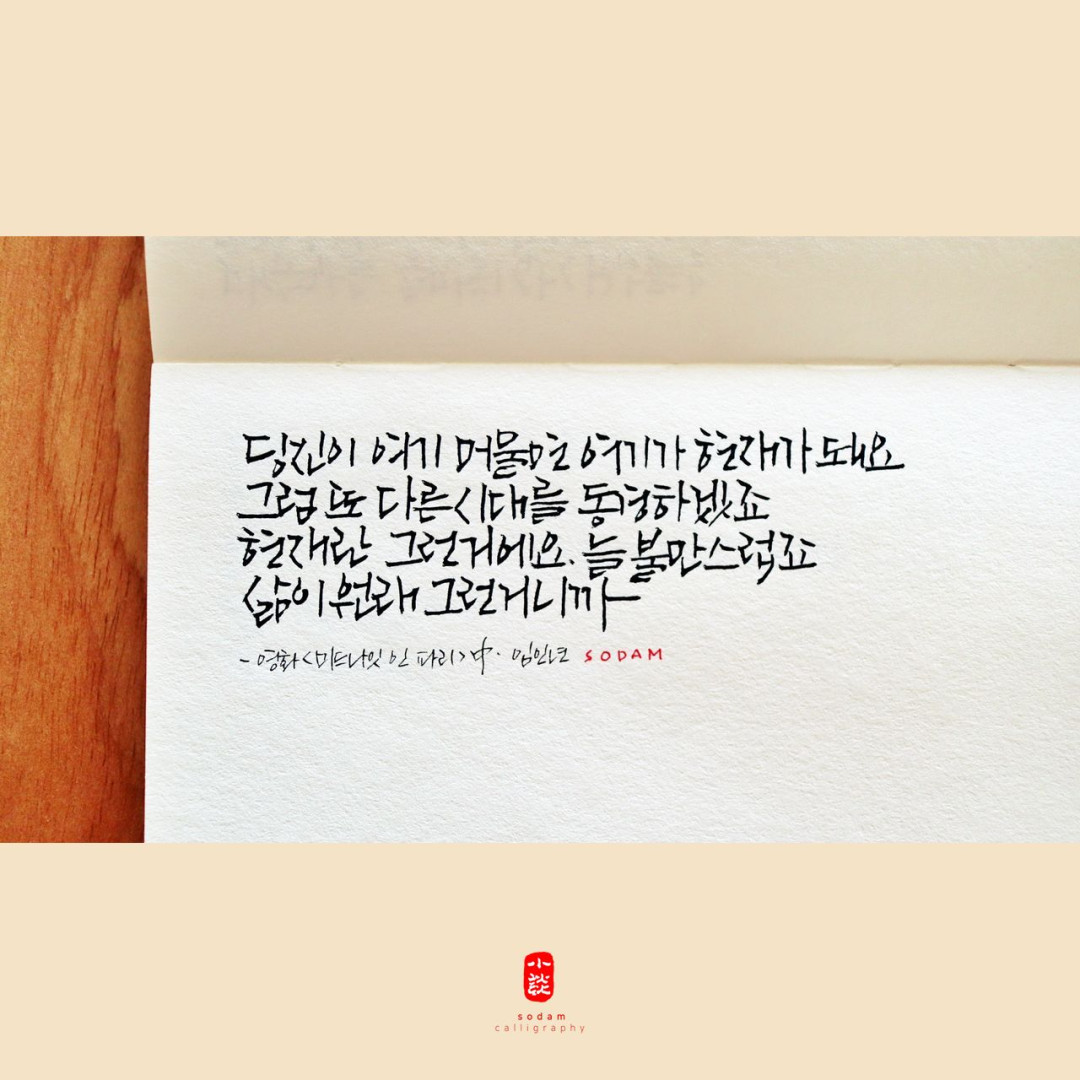 당신이 여기 머물면 여기가 현재가 돼요
그럼 또 다른 시대를 동경하겠죠
현재란 그런거에요. 늘 불만스럽죠
삶이 원래 그런거니까
- 영화 <미드나잇 인 파리> 中. 임인년 SODAM
小
談
sodam
calligraphy